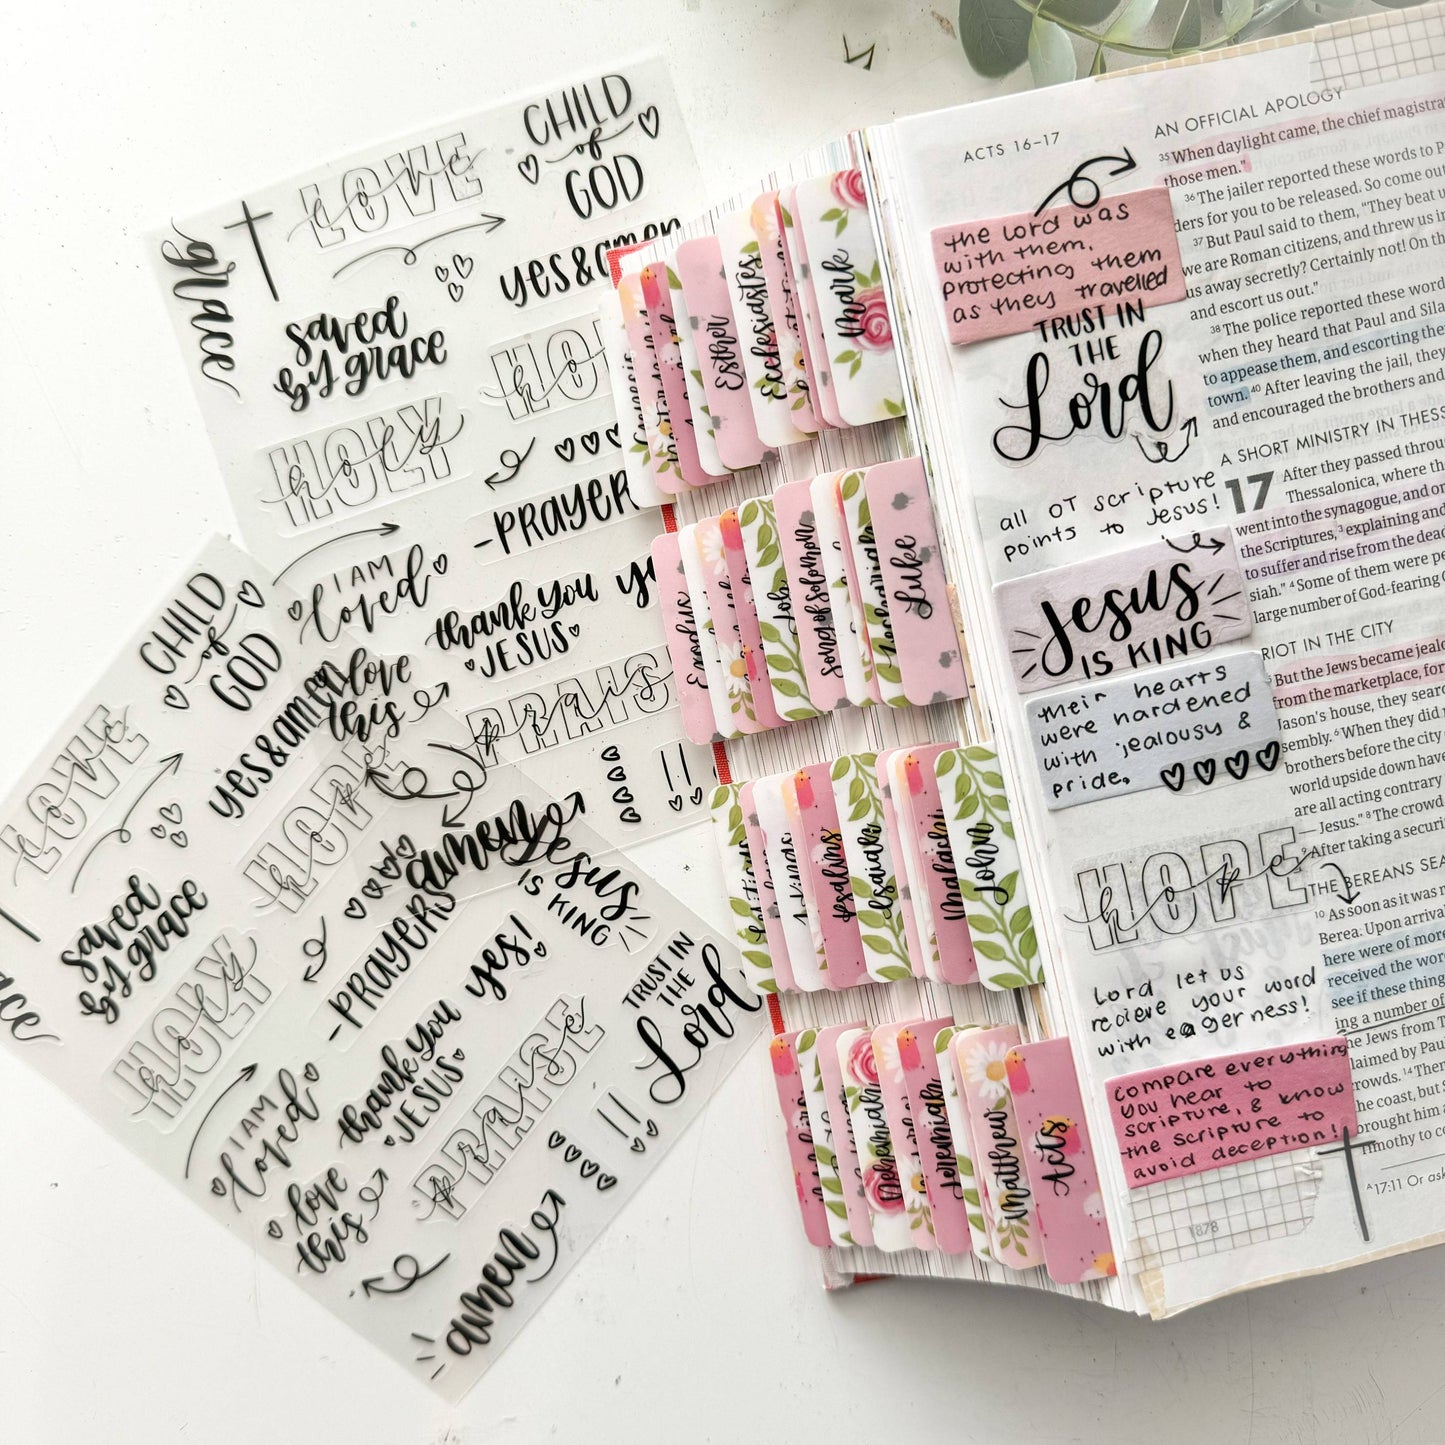 CHILD
of
GOD
LOVE
love
grace
yes & amen
saved
by grace
HOPE
hope
HOLY
holy
-PRAYER
I AM
loved
thank you
JESUS
yes
PRAISE
praise
love
this
!!
amen
CHILD
of
GOD
LOVE
love
yes & amen
HOPE
hope
saved
by grace
HOLY
holy
-PRAYERS
Jesus
IS KING
yes!
TRUST IN
THE
Lord
thank you
JESUS
I AM
loved
PRAISE
praise
love
this
!!
amen
grace
Esther
Ecclesiastes
Mark
Exodus
Job
Song of Solomon
Zechariah
Luke
Psalms
Isaiah
Malachi
John
Nehemiah
Jeremiah
Matthew
Acts
ACTS 16–17
the Lord was
with them.
protecting them
as they travelled
TRUST IN
THE
Lord
all OT scripture
points to Jesus!
Jesus
IS KING
their hearts
were hardened
with jealousy &
pride.
HOPE
hope
Lord let us
recieve your word
with eagerness!
compare everything
you hear to
scripture, & know
the scripture to
avoid deception!
1878
AN OFFICIAL APOLOGY
35 When daylight came, the chief magistra
those men."
36 The jailer reported these words to P
ders for you to be released. So come out
37 But Paul said to them, "They beat u
we are Roman citizens, and threw us in
us away secretly? Certainly not! On th
and escort us out."
38 The police reported these word
when they heard that Paul and Sila
to appease them, and escorting the
town. 40 After leaving the jail, they
and encouraged the brothers and
A SHORT MINISTRY IN THESS
17 After they passed throu
Thessalonica, where th
went into the synagogue, and on
the Scriptures, 3 explaining and
to suffer and rise from the dead
siah." 4 Some of them were pe
large number of God-fearing
RIOT IN THE CITY
5 But the Jews became jealo
from the marketplace, for
Jason's house, they sear
sembly. 6 When they did
brothers before the city
world upside down have
are all acting contrary
— Jesus." 8 The crowd
9 After taking a securi
THE BEREANS SEA
10 As soon as it was n
Berea. Upon arriva
here were of more
received the wor
see if these thing
ing a number of
he Jews from T
laimed by Paul
rowds. 14 Then
he coast, but S
brought him a
imothy to co
A 17:11 Or ask